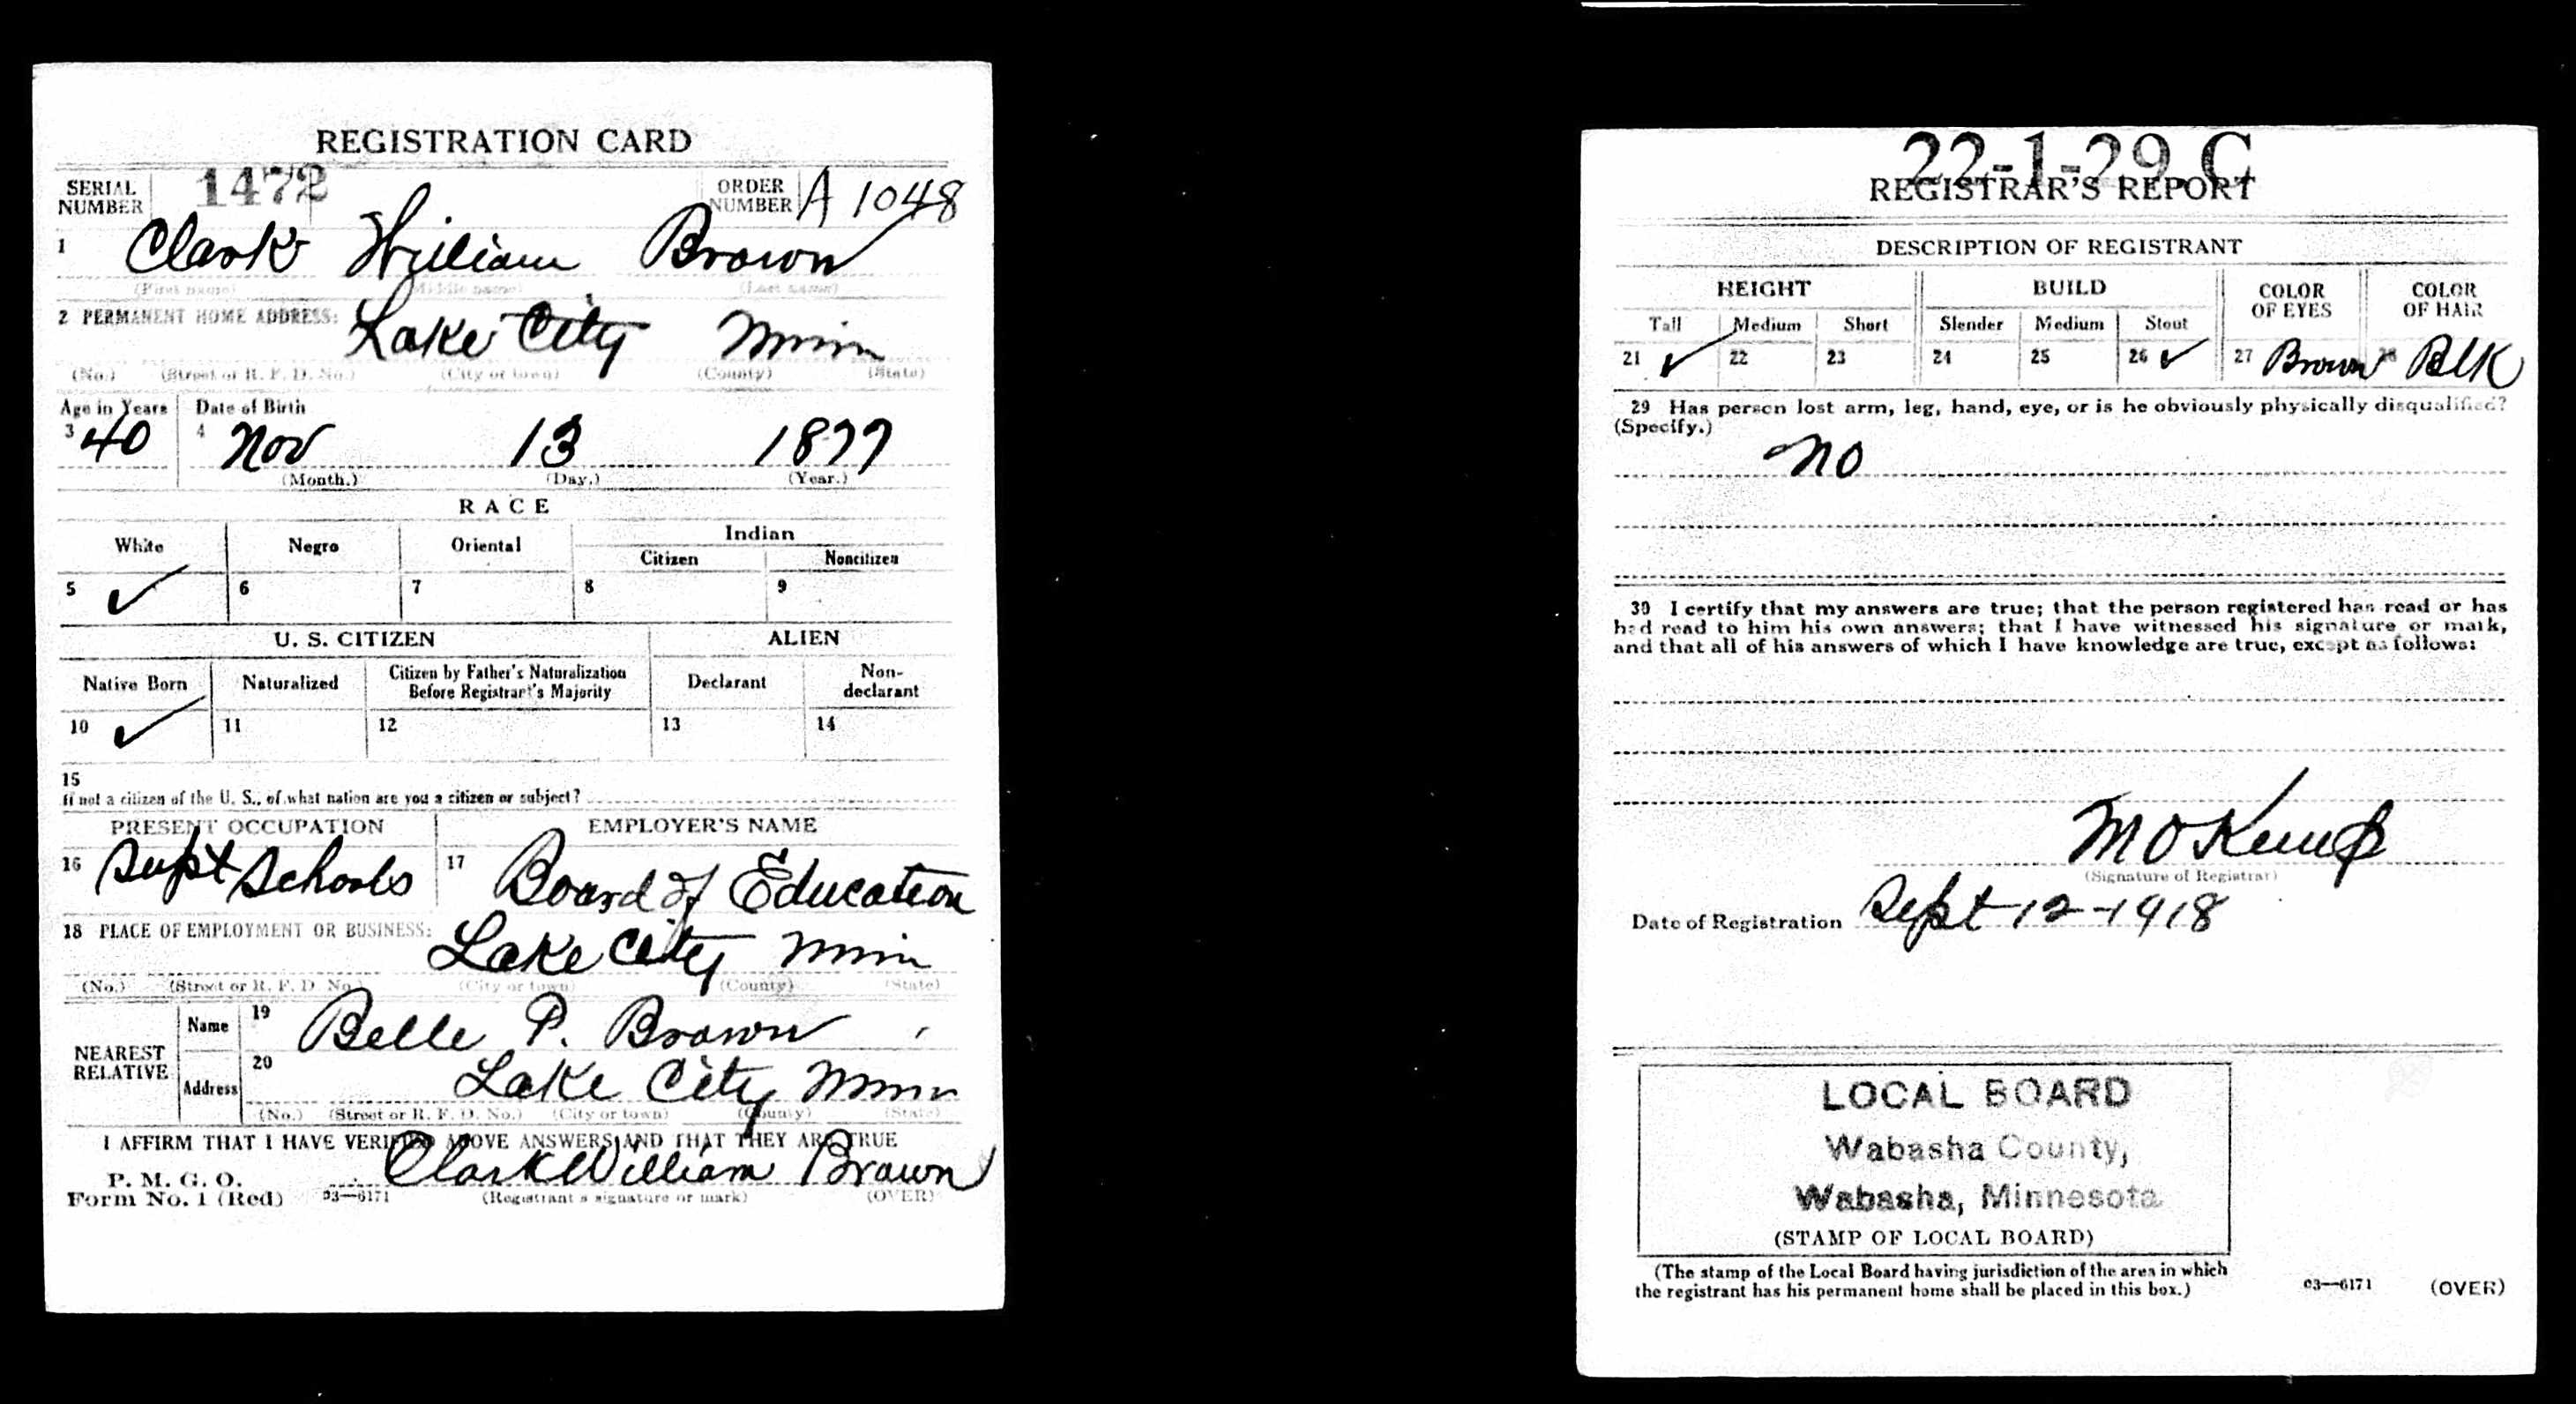 REGISTRATION CARD
SERIAL NUMBER 1472 ORDER NUMBER A 1048
1 Clark William Brown
(First name) (Middle name) (Last name)
2 PERMANENT HOME ADDRESS: Lake City Minn
(No.) (Street or R. F. D. No.) (City or town) (County) (State)
Age in Years Date of Birth
3 40 4 Nov 13 1877
(Month.) (Day.) (Year.)
RACE
White Negro Oriental Indian
Citizen Noncitizen
5 ✓ 6 7 8 9
U. S. CITIZEN ALIEN
Native Born Naturalized Citizen by Father's Naturalization Before Registrant's Majority Declarant Non-declarant
10 ✓ 11 12 13 14
15
If not a citizen of the U. S., of what nation are you a citizen or subject?
PRESENT OCCUPATION EMPLOYER'S NAME
16 Supt Schools 17 Board of Education
18 PLACE OF EMPLOYMENT OR BUSINESS: Lake City Minn
(No.) (Street or R. F. D. No.) (City or town) (County) (State)
NEAREST RELATIVE Name 19 Belle P. Brown
Address 20 Lake City Minn
(No.) (Street or R. F. D. No.) (City or town) (County) (State)
I AFFIRM THAT I HAVE VERIFIED ABOVE ANSWERS AND THAT THEY ARE TRUE
P. M. G. O.
Form No. 1 (Red) 03—6171 Clark William Brown
(Registrant's signature or mark) (OVER)
22-1-29 C
REGISTRAR'S REPORT
DESCRIPTION OF REGISTRANT
HEIGHT BUILD COLOR OF EYES COLOR OF HAIR
Tall Medium Short Slender Medium Stout
21 ✓ 22 23 24 25 26 ✓ 27 Brown 28 Blk
29 Has person lost arm, leg, hand, eye, or is he obviously physically disqualified?
(Specify.)
no
30 I certify that my answers are true; that the person registered has read or has
had read to him his own answers; that I have witnessed his signature or mark,
and that all of his answers of which I have knowledge are true, except as follows:
M O Kemp
(Signature of Registrar)
Date of Registration Sept 12-1918
LOCAL BOARD
Wabasha County,
Wabasha, Minnesota
(STAMP OF LOCAL BOARD)
(The stamp of the Local Board having jurisdiction of the area in which
the registrant has his permanent home shall be placed in this box.)
03—6171 (OVER)